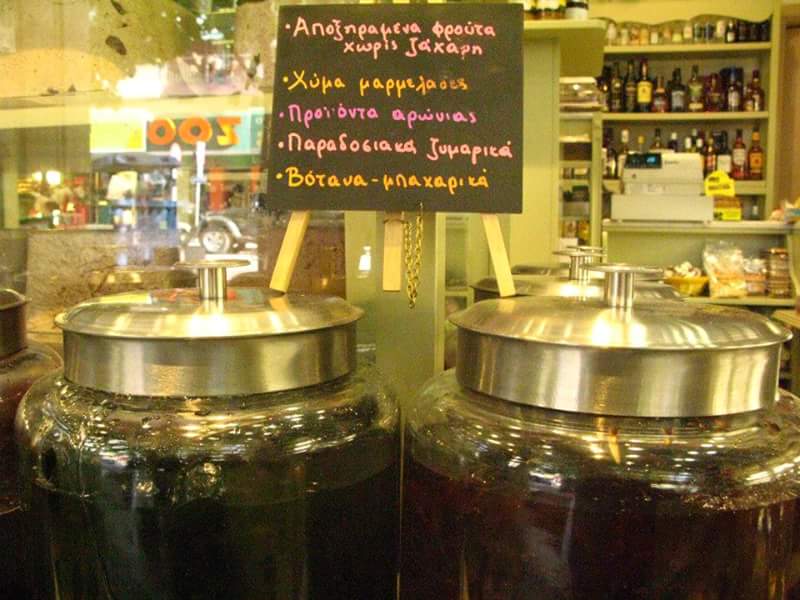 · Αποξηραμενα φρούτα
χωρίς ζάχαρη
· Χύμα μαρμελάδες
· Προϊόντα αρώνιας
· Παραδοσιακά ζυμαρικά
· Βότανα - μπαχαρικά